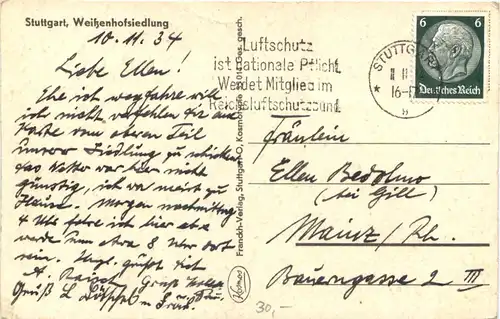 Stuttgart, Weißenhofsiedlung
10.11.34
Liebe Ellen!
Ehe ich wegfahre will
ich nicht verfehlen Dir eine
Karte vom oberen Teil
unserer Siedlung zu schicken
das Wetter war hier nicht
günstig, ich war meist zu
Hause. Morgen nachmittag
4 Uhr fahre ich hier ab u.
werde um etwa 8 Uhr dort
sein. Herzl. grüßt Dich
A. Gruß
Gruß L
Franckh-Verlag, Stuttgart-O, Kosmos
ges. gesch.
Kosmos
Luftschutz
ist nationale Pflicht
Werdet Mitglied im
Reichsluftschutzbund
STUTTGART
11
16-17
6 6
Deutsches Reich
Fräulein
Ellen
(bei Gill)
Mainz/Rh.
Bauerngasse 2 III
30,-